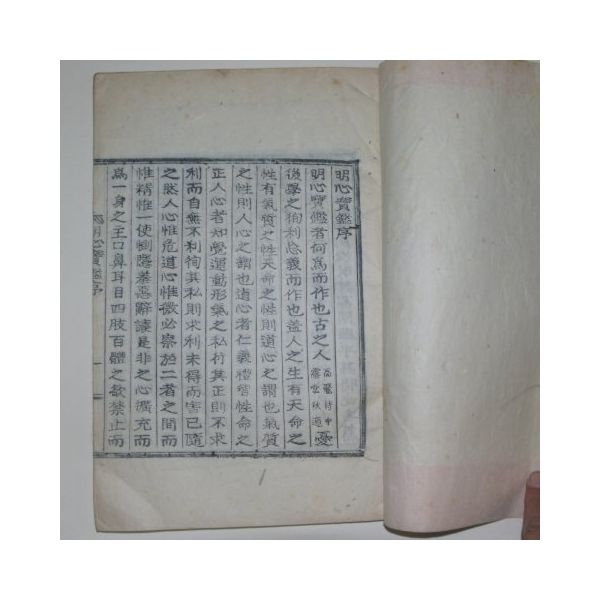 明心寶鑑序
明心寶鑑者何爲而作也古之人高麗侍中露堂秋適憂
後學之徇利忘義而作也蓋人之生有天命之
性有氣質之性天命之性則道心之謂也氣質
之性則人心之謂也道心者仁義禮智性命之
正人心者知覺運動形氣之私行其正則不求
利而自無不利徇其私則求利未得而害已隨
之然人心惟危道心惟微必察於二者之間而
惟精惟一使惻隱羞惡辭讓是非之心擴充而
爲一身之主口鼻耳目四肢百體之欲禁止而
明心寶鑑序 一